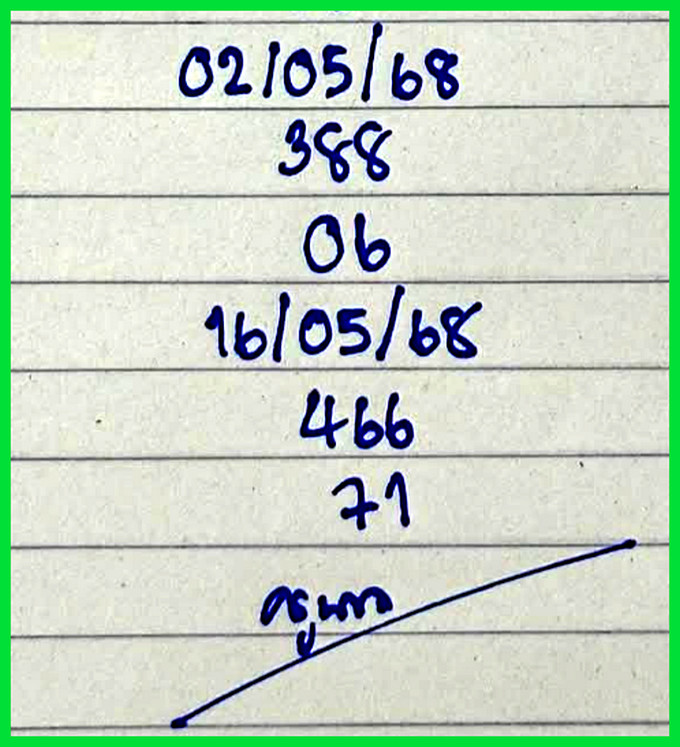 02/05/68
388
06
16/05/68
466
71